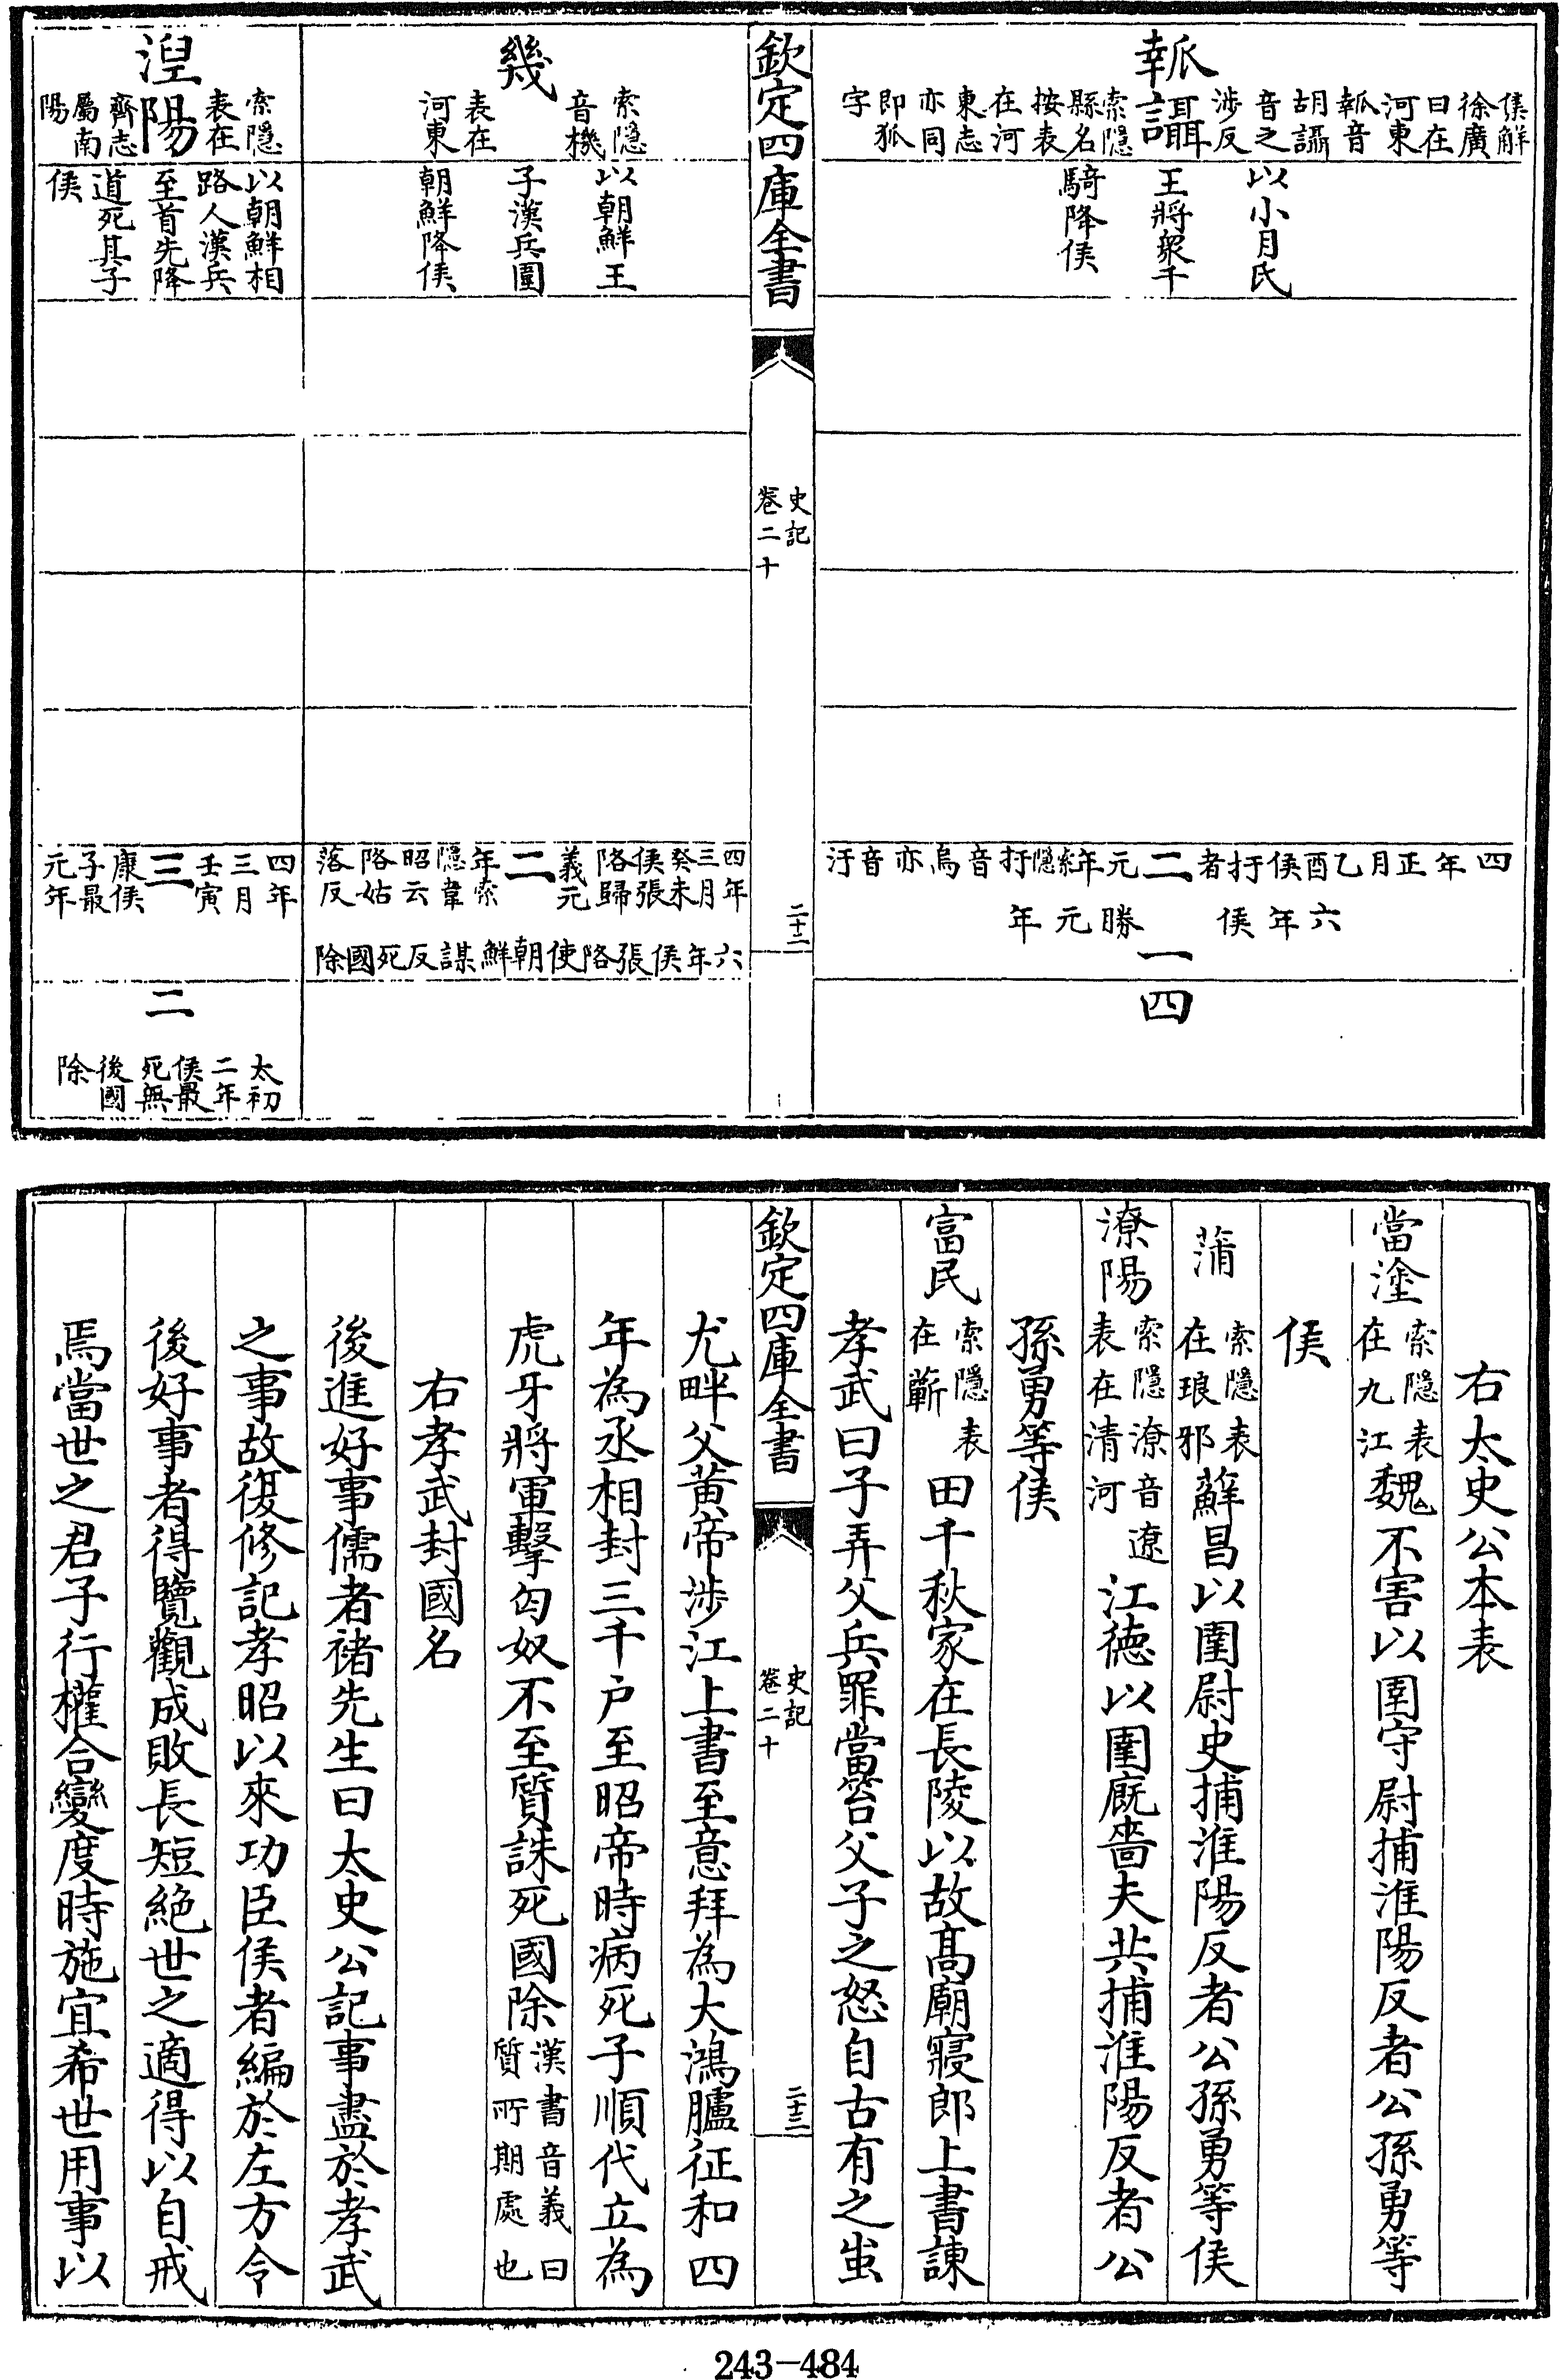 瓡讘
侯解
徐廣
曰在
河東
瓡音
胡讘
音之
涉反
索隱
縣名
按表
在河
東志
亦同
即狐
字
以小月氏
王將衆千
騎降侯
四年正月乙酉侯扜者二元年索隱扜音烏亦音汙
六年侯勝元年
一
四
欽定四庫全書
史記
卷二十
二十二
幾
索隱
音機
表在
河東
以朝鮮王
子漢兵圍
朝鮮降侯
四年
三月
癸未
侯張
路歸
義元
二
年索
隱韋
昭云
路姑
落反
六年侯張路使朝鮮謀反死國除
湼陽
索隱
表在
齊志
屬南
陽
以朝鮮相
路人漢兵
至首先降
道死其子
侯
四年
三月
壬寅
三
康侯
子最
元年
二
太初
二年
侯最
死無
後國
除
右太史公本表
當塗索隱表在九江魏不害以圉守尉捕淮陽反者公孫勇等
侯
蒲索隱表在琅邪蘇昌以圉尉史捕淮陽反者公孫勇等侯
潦陽索隱潦音遼表在清河江德以圉廐嗇夫共捕淮陽反者公
孫勇等侯
富民索隱表在蘄田千秋家在長陵以故髙廟寢郎上書諫
孝武曰子弄父兵罪當笞父子之怒自古有之蚩
欽定四庫全書
史記
卷二十
二十三
尤畔父黄帝涉江上書至意拜為大鴻臚征和四
年為丞相封三千户至昭帝時病死子順代立為
虎牙將軍擊匈奴不至質誅死國除漢書音義曰質所期處也
右孝武封國名
後進好事儒者褚先生曰太史公記事盡於孝武
之事故復修記孝昭以來功臣侯者編於左方令
後好事者得覽觀成敗長短絶世之適得以自戒
焉當世之君子行權合變度時施宜希世用事以
243-484